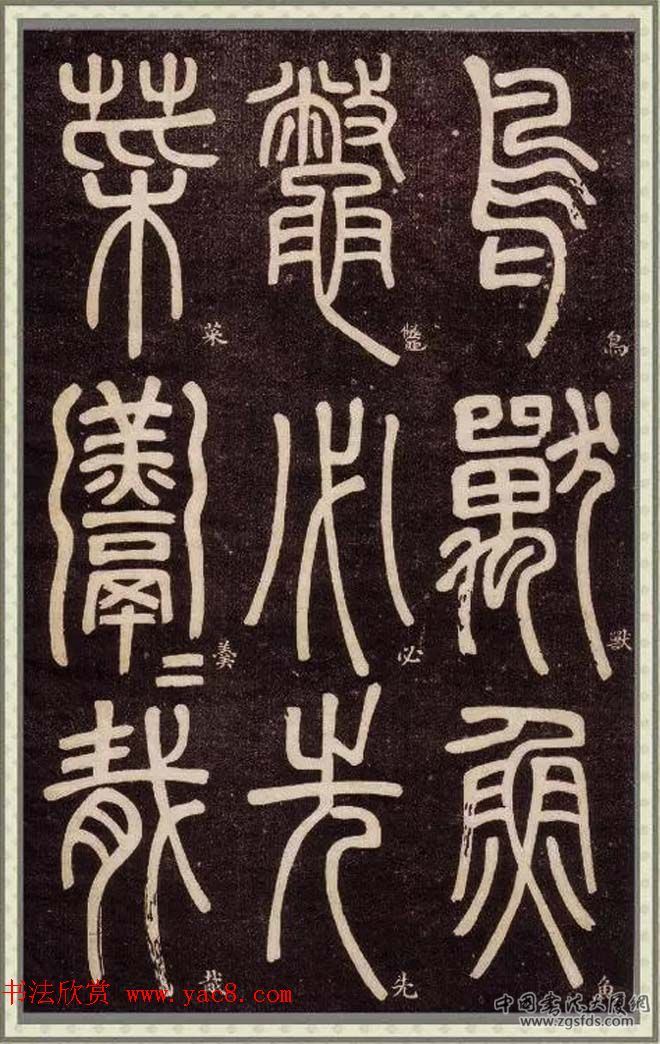 鳥獸魚
鼈必先
菜羹二胾
鳥
獸
魚
鼈
必
先
菜
羹
胾
书法欣赏 www.yac8.com
中国书法大展网
www.zgsfds.com